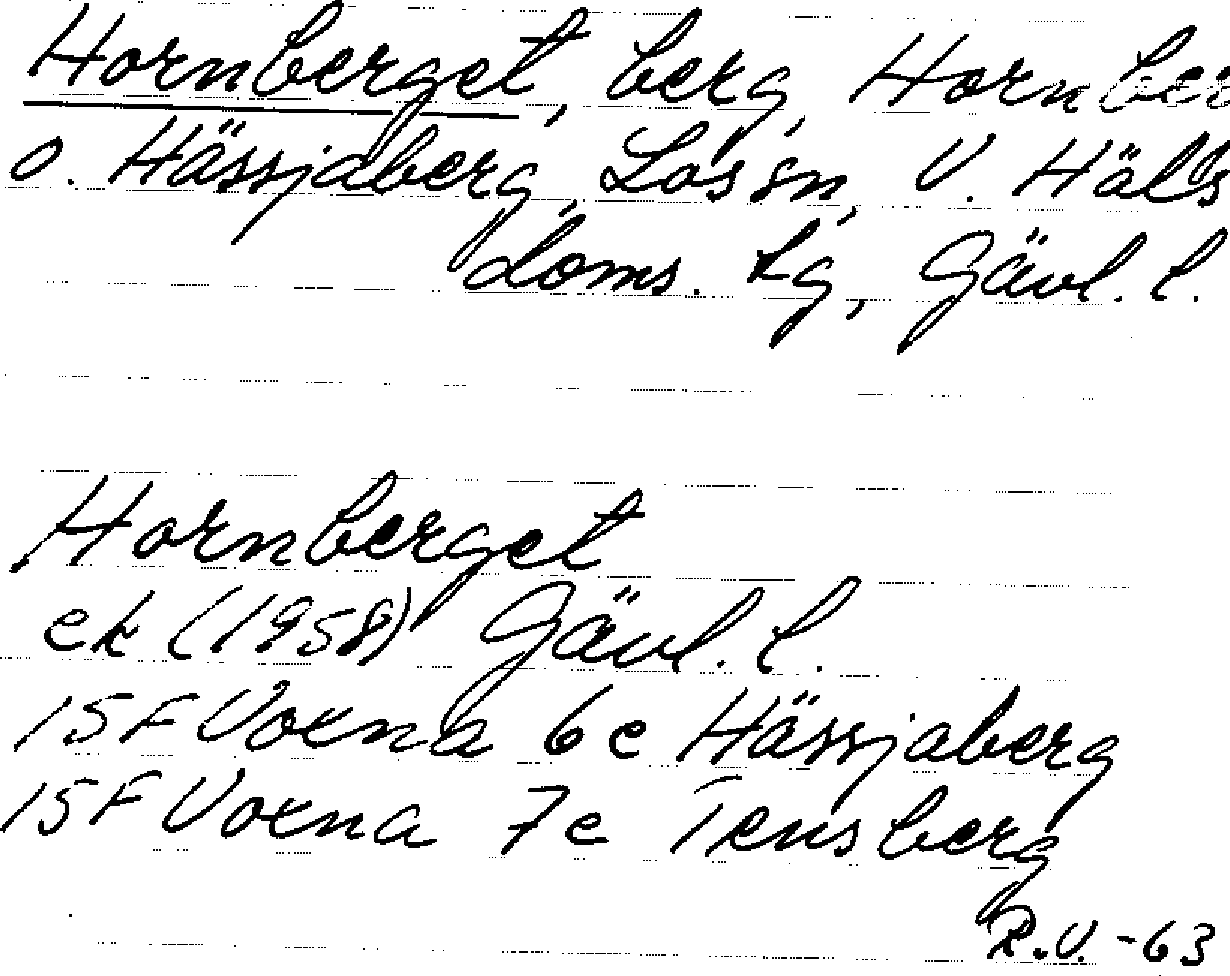 Hornberget, berg, Hornber
o. Hässjaberg, Los sn, V. Häls
doms. lg, Gävl. l.
Hornberget
ek (1958) Gävl. l.
15F Voxna 6e Hässjaberg
15F Voxna 7e Tensberg
R.V. -63